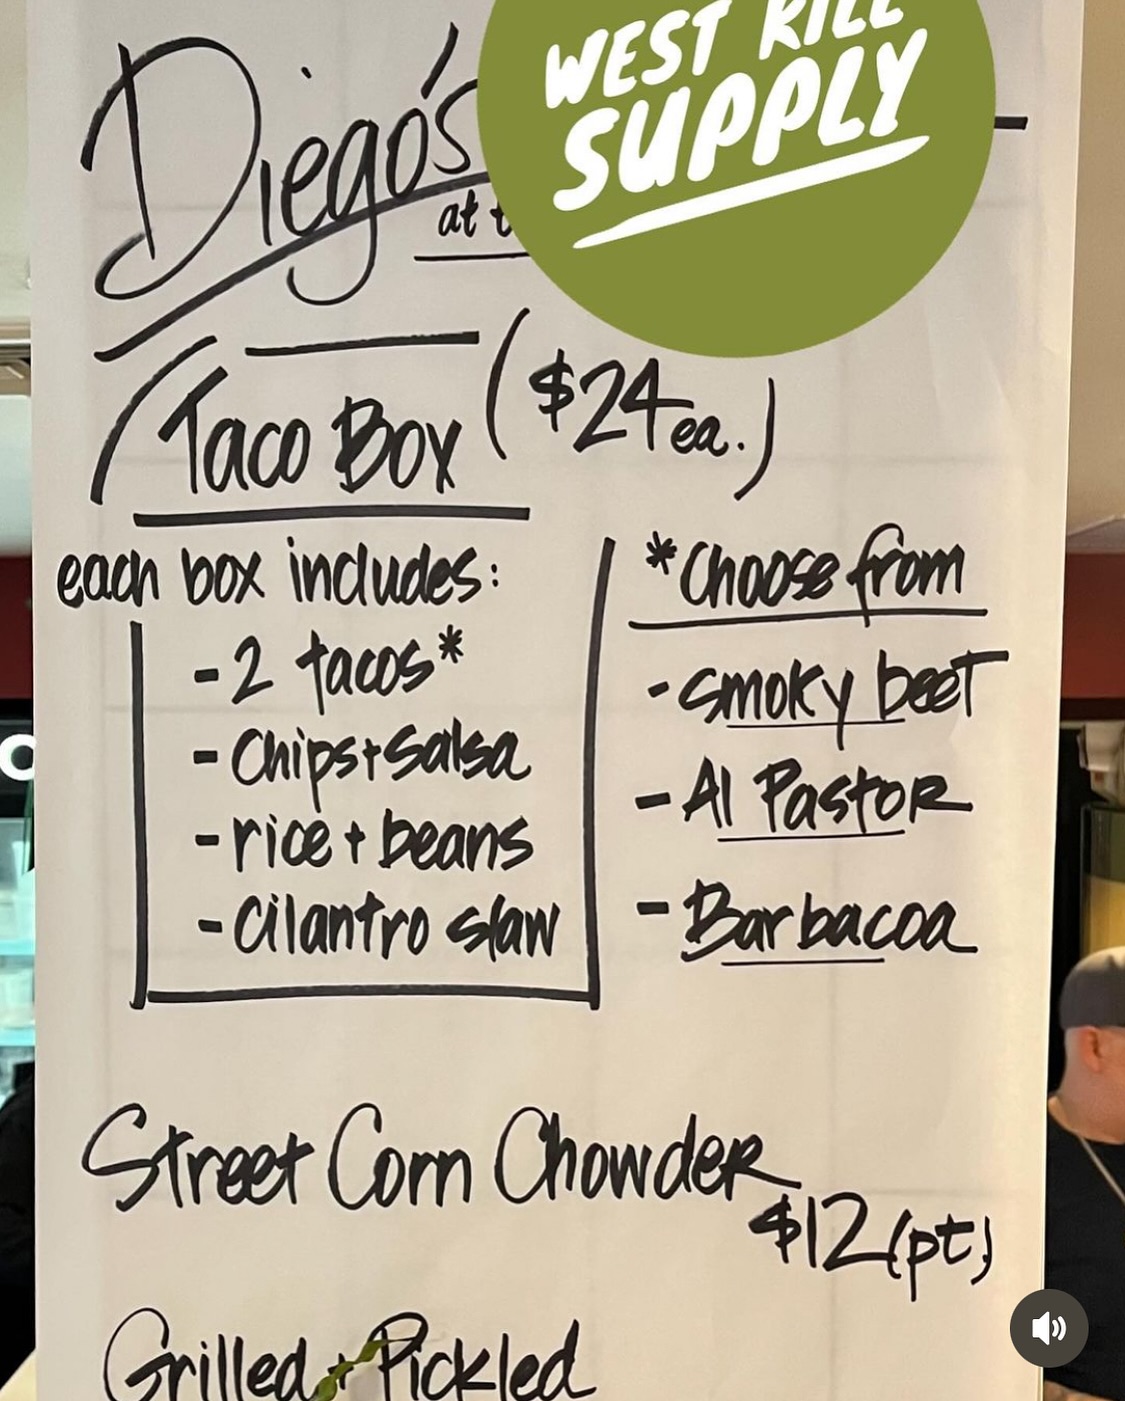 WEST KILL
SUPPLY
Diego's
at t
Taco Box ($24 ea.)
each box includes:
- 2 tacos*
- Chips + Salsa
- rice + beans
- Cilantro slaw
*Choose from
- smoky beet
- Al Pastor
- Barbacoa
Street Corn Chowder
$12 (pt)
Grilled + Pickled